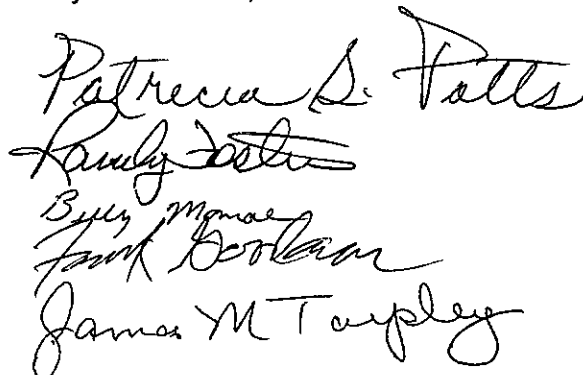 Patricia S. Potts
Randy Foster
Billy Monroe
Frank
James M Tarpley